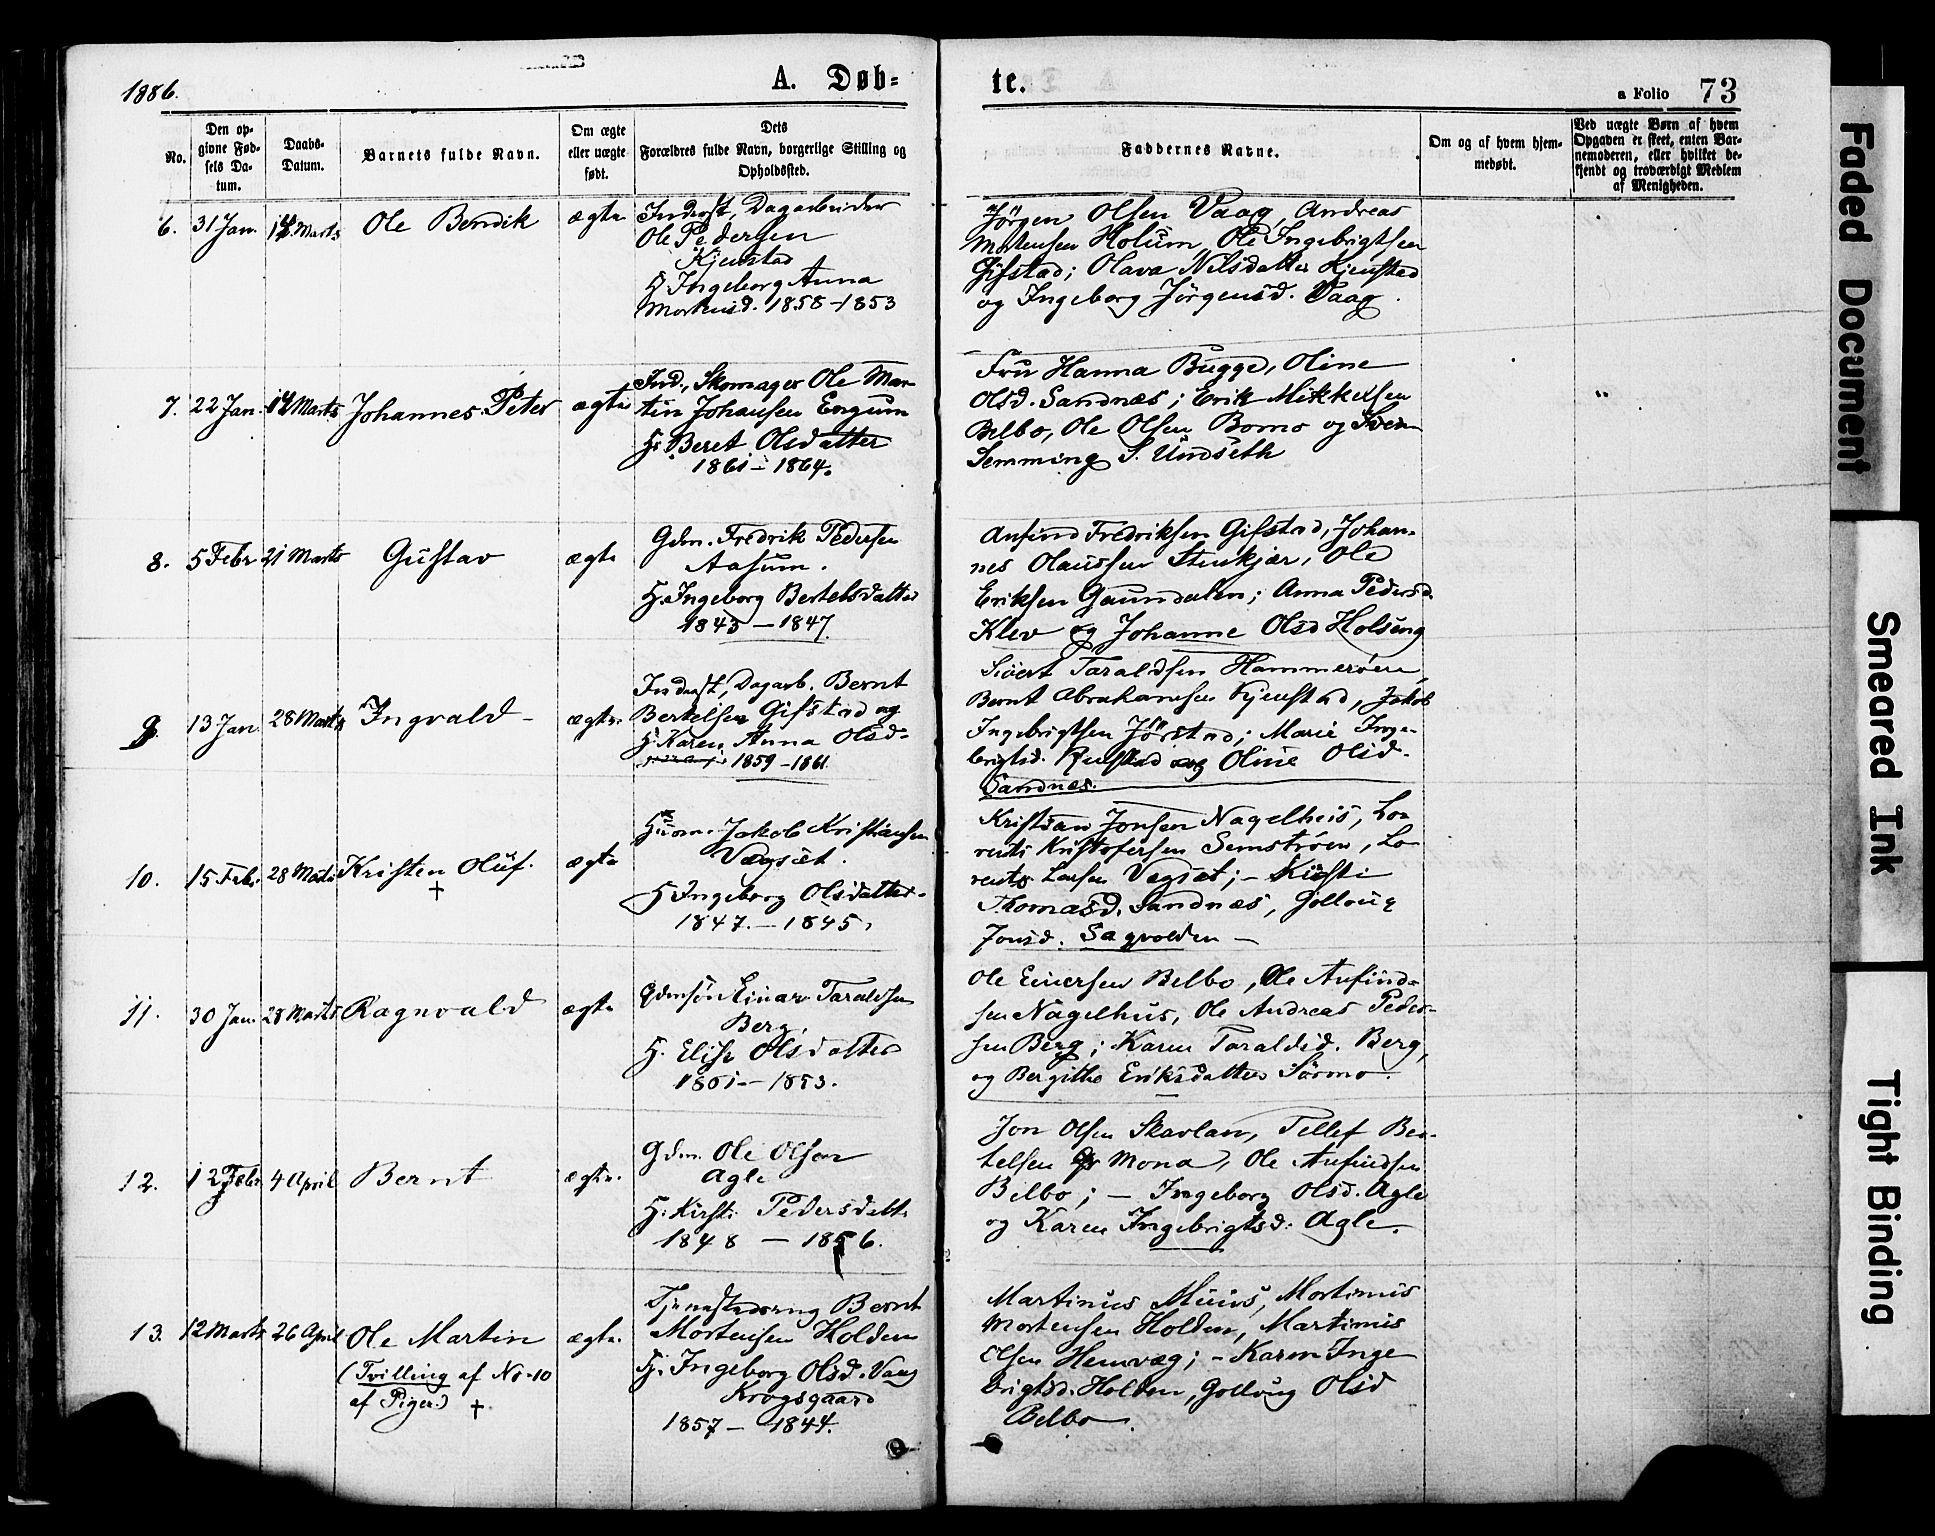 1886.
A. Døb=
te.
a Folio 73
No.
Den op-
givne Fød-
sels Da-
tum.
Daabs-
Datum.
Barnets fulde Navn.
Om ægte
eller uægte
født.
Dets
Forældres fulde Navn, borgerlige Stilling og
Opholdssted.
Faddernes Navne.
Om og af hvem hjem-
medøbt.
Ved uægte Børn af hvem
Opgaven er skeet, enten Bar-
nemoderen, eller hvilket be-
kjendt og troværdigt Medlem
af Menigheden.
6. 31 Jan. 14 Marts Ole Bendik ægte
Inderst, Dagarbeider
Ole Pedersen
Kjenstad
H. Ingeborg Anna
Mortensd. 1858-1853
Jørgen Olsen Vaag, Andreas
Mortensen Holum, Ole Ingebrigtsen
Gifstad; Olava Nilsdatter Kjenstad
og Ingeborg Jørgensd. Vaag.
7. 22 Jan. 14 Marts Johannes Peter ægte
Ind., Skomager Ole Mar-
tin Johansen Engum
H. Beret Olsdatter
1861-1864.
Fru Hanna Bugge, Oline
Olsd. Sandnæs; Erik Mikkelsen
Belbo, Ole Olsen Bomo og Sven
Semming S. Undseth
"
8. 5 Febr. 21 Marts Gustav ægte
Gdm. Fredrik Pedersen
Aasum.
H. Ingeborg Bertelsdatter
1843-1847.
Anfind Fredriksen Gifstad, Johan-
nes Olaussen Stenkjær, Ole
Eriksen Gaundalen; Anna Pedersd.
Klev og Johanne Olsd Holsing
9. 13 Jan. 28 Marts Ingvald- ægte.
Inderst, Dagarb. Bernt
Bertelsen Gifstad og
H. Karen Anna Olsd-
1859-1861.
Sivert Taraldsen Hammerøen,
Bernt Abrahamsen Kjenstad, Jakob
Ingebrigtsen Jørstad; Marie Inge-
brigtsd. Kjenstad og Oline Olsd.
Sandnæs.
10. 15 Febr. 28 Marts Kristen Oluf. ægte
†
Husm. Jakob Kristiansen
Vægset.
H. Ingeborg Olsdatter.
1847.-1845.
Kristian Jonsen Nagelhus, Lo-
rents Kristofersen Semstrøen, Lo-
rents Larsen Vegset; - Kirsti
Thomasd. Sandnæs, Gollaug
Jonsd. Sagvolden -
11. 30 Jan. 28 Marts Ragnvald ægte
Gdmsøn Einar Taraldsen
Berg.
H. Elise Olsdatter
1851-1853.
Ole Einersen Belbo, Ole Anfind-
sen Nagelhus, Ole Andreas Peder-
sen Berg; Karen Taraldsd. Berg,
og Bergithe Eriksdatter Sørmo.
12. 12 Febr. 4 April Bernt ægte.
Gdm. Ole Olsen
Agle
H. Kirsti Pedersdatt.
1848 - 1856.
Jon Olsen Skavlan, Tellef Ber-
telsen Mona, Ole Anfindsen
Belbo; - Ingeborg Olsd. Agle
og Karen Ingebrigtsd. Agle.
13. 12 Marts 26 April Ole Martin ægte.
(Tvilling af No-10
af Piger.) †
Tjenestedreng Bernt
Mortensen Holden
Pi. Ingeborg Olsd. Vaag
Krogsgaard
1857-1844.
Martinus Muus, Mortinus
Mortensen Holden, Martinus
Olsen Hemvæg; - Karen Inge
brigtsd. Holden, Gollaug Olsd
Belbo.
Faded Document
Smeared Ink
Tight Binding